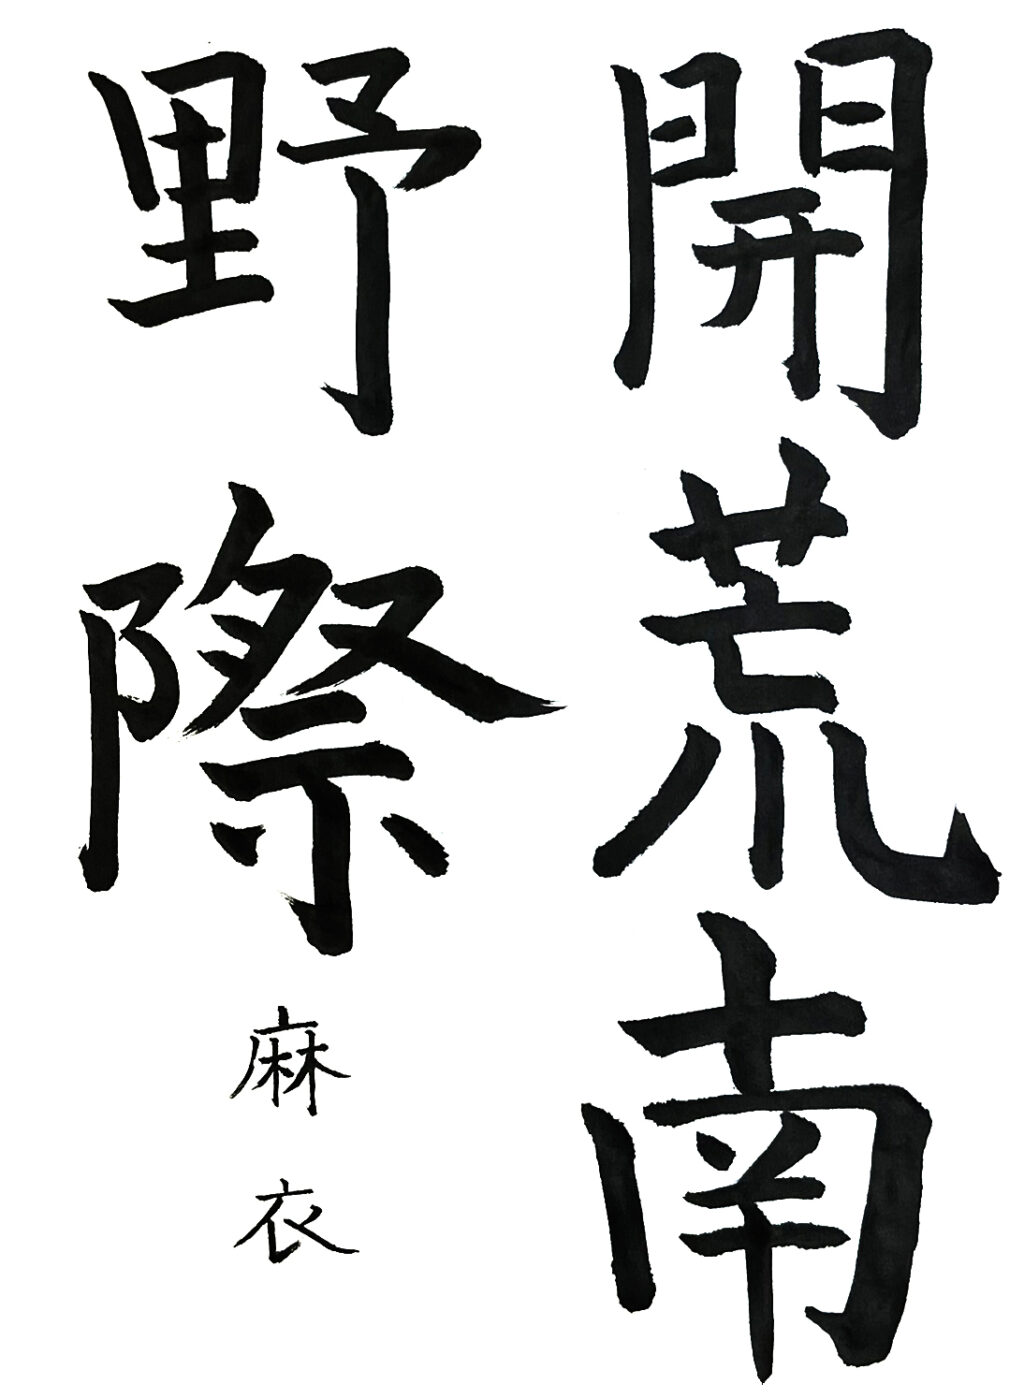 開荒南
野際
麻衣